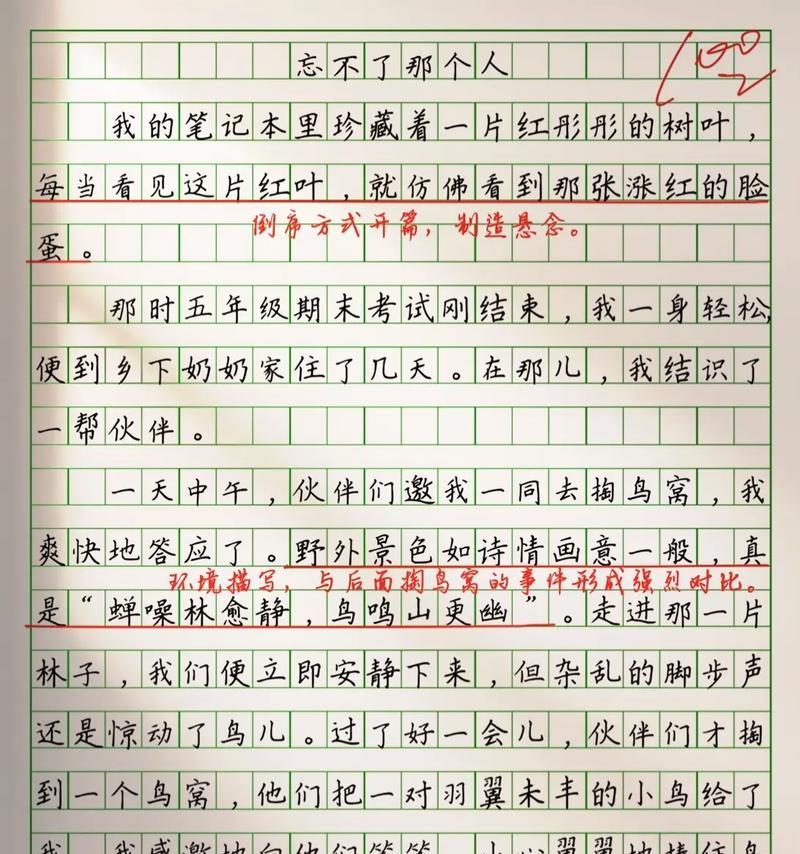 忘不了那个人
100
我的笔记本里珍藏着一片红彤彤的树叶，
每当看见这片红叶，就仿佛看到那张涨红的脸
倒序方式开篇，制造悬念。
蛋。
那时五年级期末考试刚结束，我一身轻松，
便到乡下奶奶家住了几天。在那儿，我结识了
一帮伙伴。
一天中午，伙伴们邀我一同去掏鸟窝，我
爽快地答应了。野外景色如诗情画意一般，真
环境描写，与后面掏鸟窝的事件形成强烈对比。
是“蝉噪林愈静，鸟鸣山更幽”。走进那一片
林子，我们便立即安静下来，但杂乱的脚步声
还是惊动了鸟儿。过了好一会儿，伙伴们才掏
到一个鸟窝，他们把一对羽翼未丰的小鸟给了
我，我感激地向他们笑笑，小心翼翼地捧住鸟